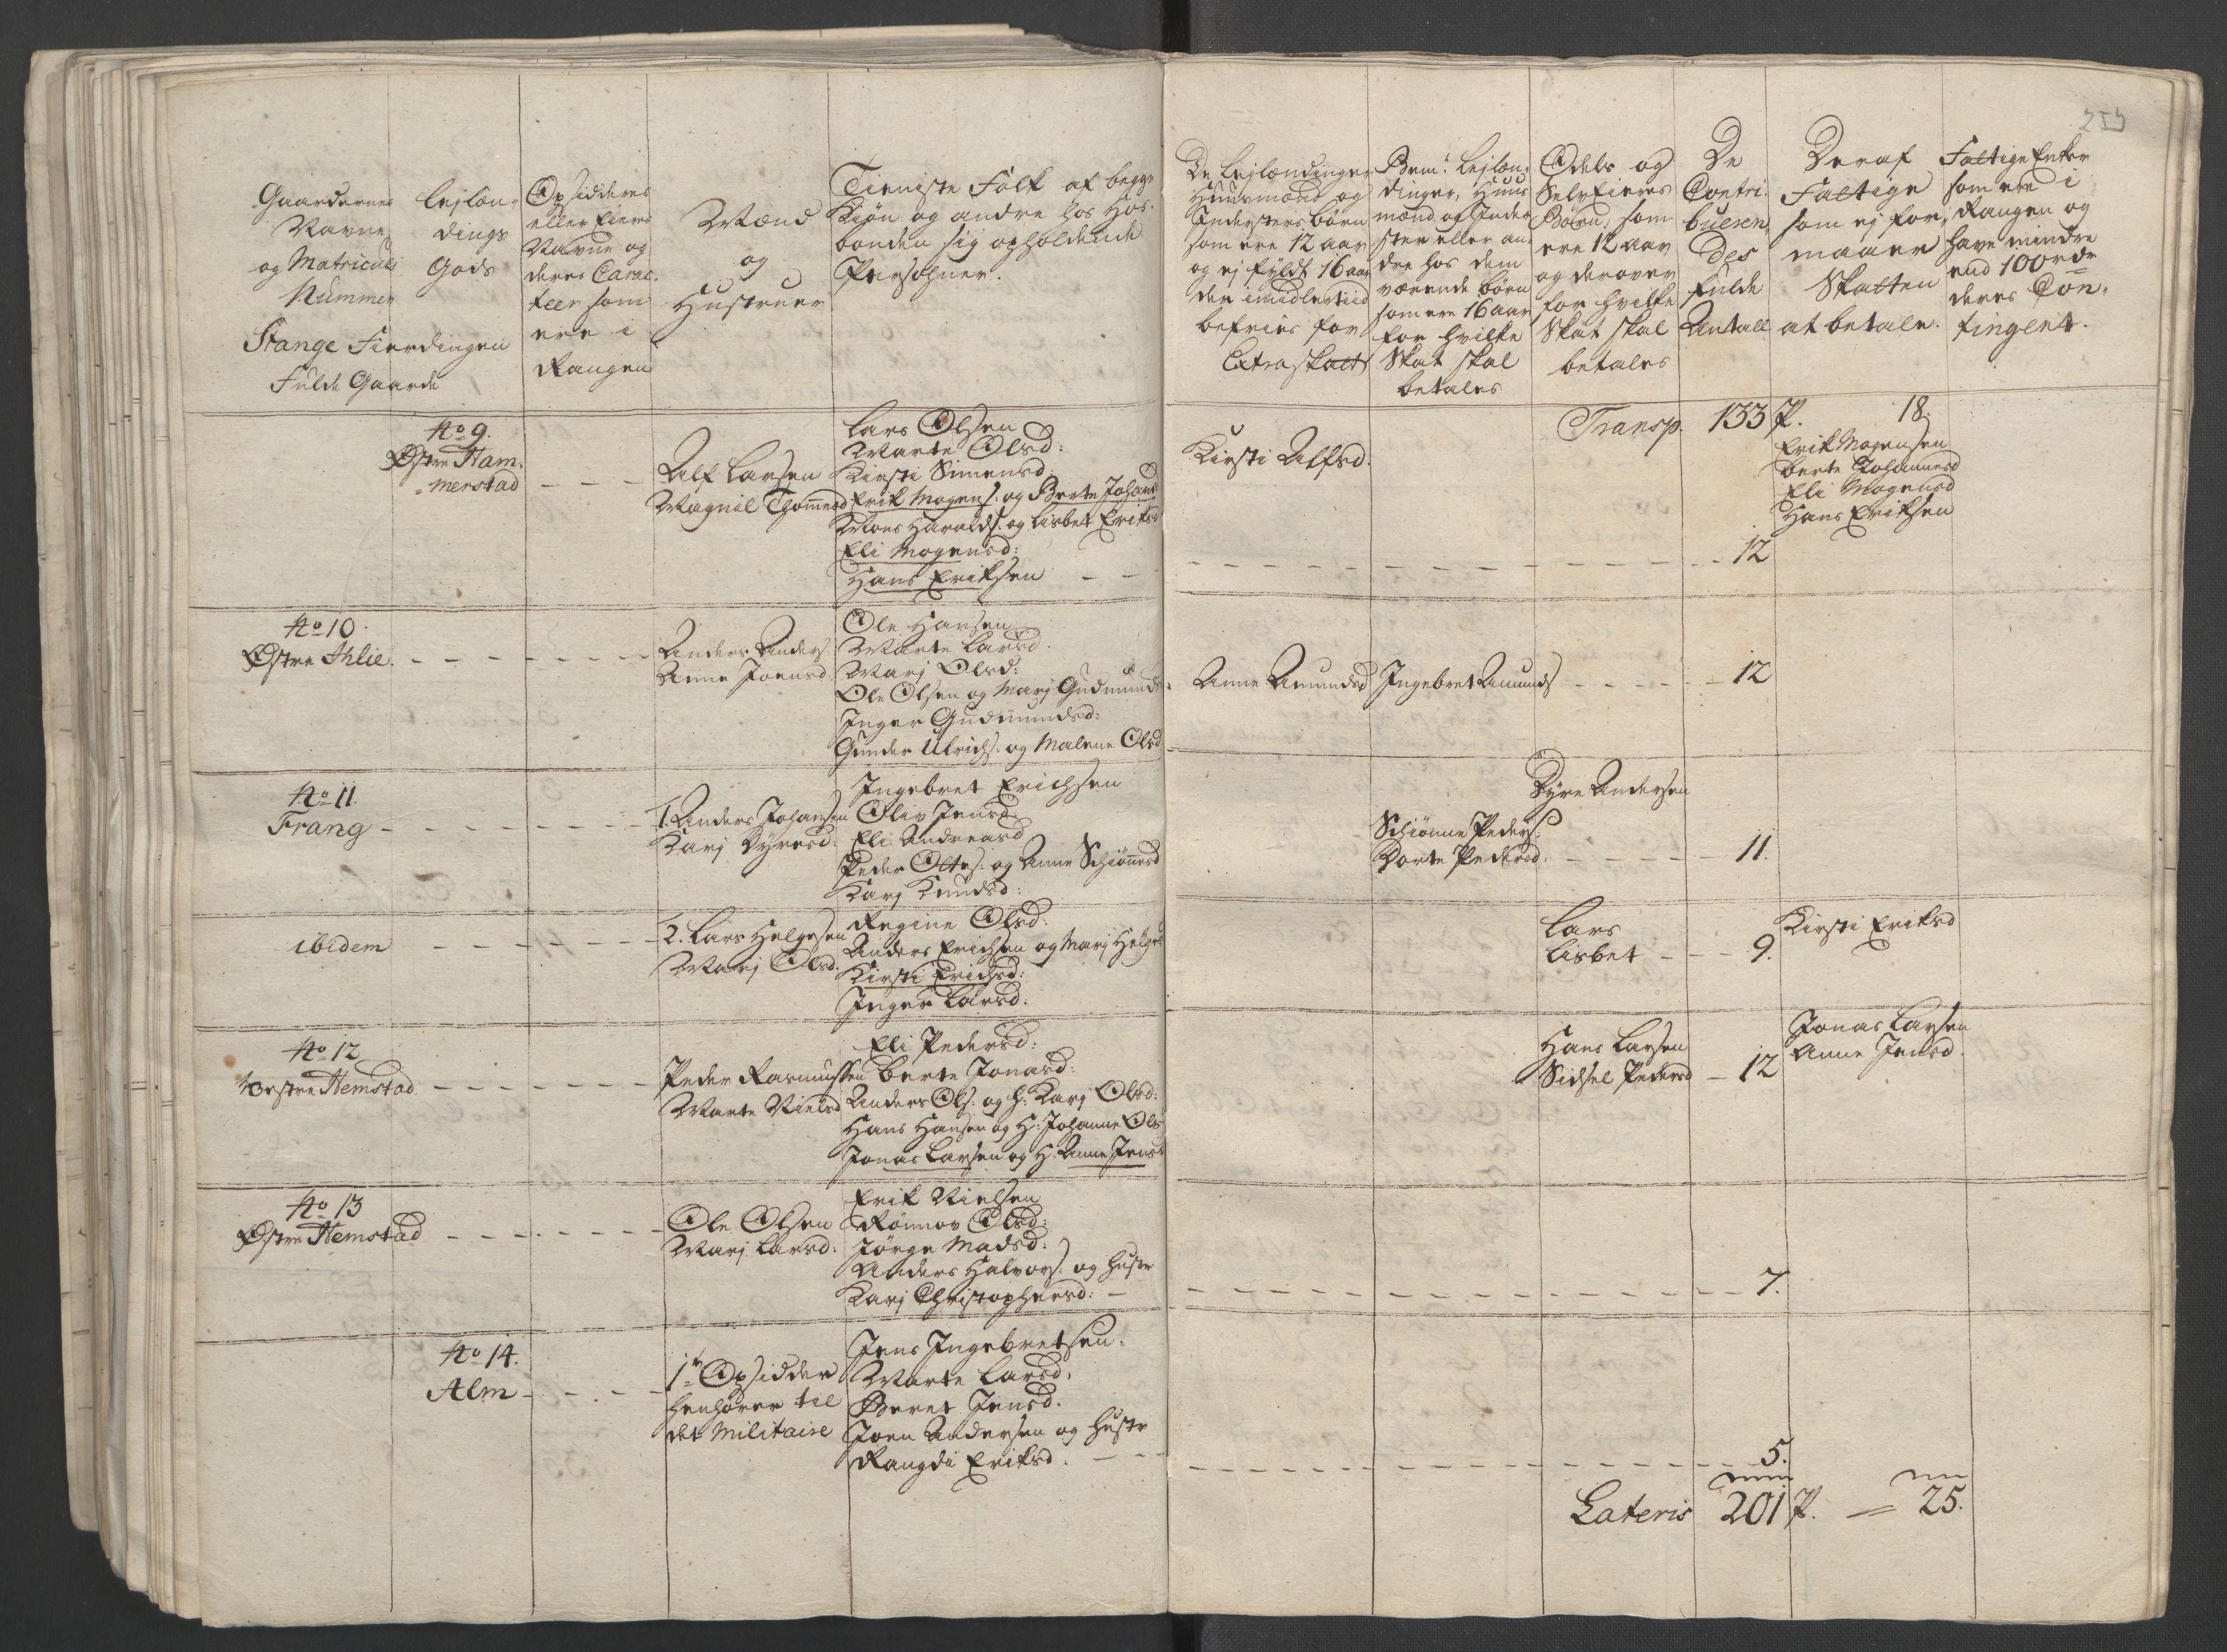 259
Gaardernes
Navne
og Matricul
Nummer
Stange Fierdingen
Fulde Gaarde
Lejlæn-
dings
Gods
Opsidderes
eller Eieres
Navne og
deres Carac-
teer som
ere i
Rangen
Mænd
og
Hustruer
Tieniste Folk af begge
Kiøn og andre hos Hos-
bonden sig opholdende
Persohner.
De Lejlændinger
Huusmænds og
Inderstes børn
som ere 12 aar
og ej fyldt 16 aar
der imidlertiid
befries for
Extraskatt
Bem: Lejlæn-
dinger, Huus
mænd og Inder
ster eller an-
dre hos dem
værende børn
som ere 16 aar
for hvilke
Skat skal
betales
Odels og
SelvEieres
Børn, som
ere 12 aar
og derover
for hvilke
Skat skal
betales
De
Contri-
bueren-
des
fulde
Antall
Deraf
Fattige
som ej for-
maaer
Skatten
at betale.
Fattige Enker
som ere i
Rangen og
have mindre
end 100 rdr
deres Con-
tingent.
Transp. 133 P. 18.
No 9.
Østre Ham-
merstad
Alf Larsen
Magnil Thomesd
Lars Olsen
Marte Olsd:
Kirsti Simensd
Erik Mogens: og Berte Johansd
Mons Haralds: og Lisbet Eriksd
Eli Mogensd:
Hans Eriksen
Kirsti Alfsd.
12
Erik Mogensen
Berte Johannesd
Eli Mogensd
Hans Eriksen
No 10.
Østre Ihlie.
Anders Anders
Anne Joensd
Ole Hansen
Marte Larsd.
Marj Olsd:
Ole Olsen og Marj Gudmunds
Inger Gudmundsd:
Gunder Ulrichs: og Malene Olsd
Anne Amundsd
Ingebret Amunds
12
No 11.
Frang
1. Anders Johansen
Karj Dyresd:
Ingebret Erichsen
Oliv Jensd:
Eli Andreasd
Peder Oltes: og Anne Schiønnesd
Karj Knudsd:
Schiønne Peders.
Dorte Pedersd.
Dyre Andersen
11.
ibidem
2. Lars Helgesen
Marj Olsd.
Regine Olsd:
Anders Erichsen og Marj Helges
Kirsti Erichsd:
Inger Larsd:
Lars
Lisbet
9.
Kirsti Eriksd
No 12
Vestre Hemstad
Peder Rasmussen
Marte Nielsd
Eli Pedersd:
Berte Jonasd:
Anders Ols: og H: Karj Olsd:
Hans Hansen og H: Johanne Ols
Jonas Larsen og H: Anne Jensd
Hans Larsen
Sidsel Pedersd
12
Jonas Larsen
Anne Jensd.
No 13
Østre Hemstad
Ole Olsen
Marj Larsd:
Erik Nielsen
Rønnov Olsd:
Jørge Madsd:
Anders Halvors: og Hustr
Karj Christophersd:
7.
No 14.
Alm
1te Opsidder
henhører til
det Militaire
Jens Ingebretsen.
Marte Larsd.
Beret Jensd.
Joen Andersen og Hustr
Rangdi Eriksd.
5.
Lateris 201 P. = 25.